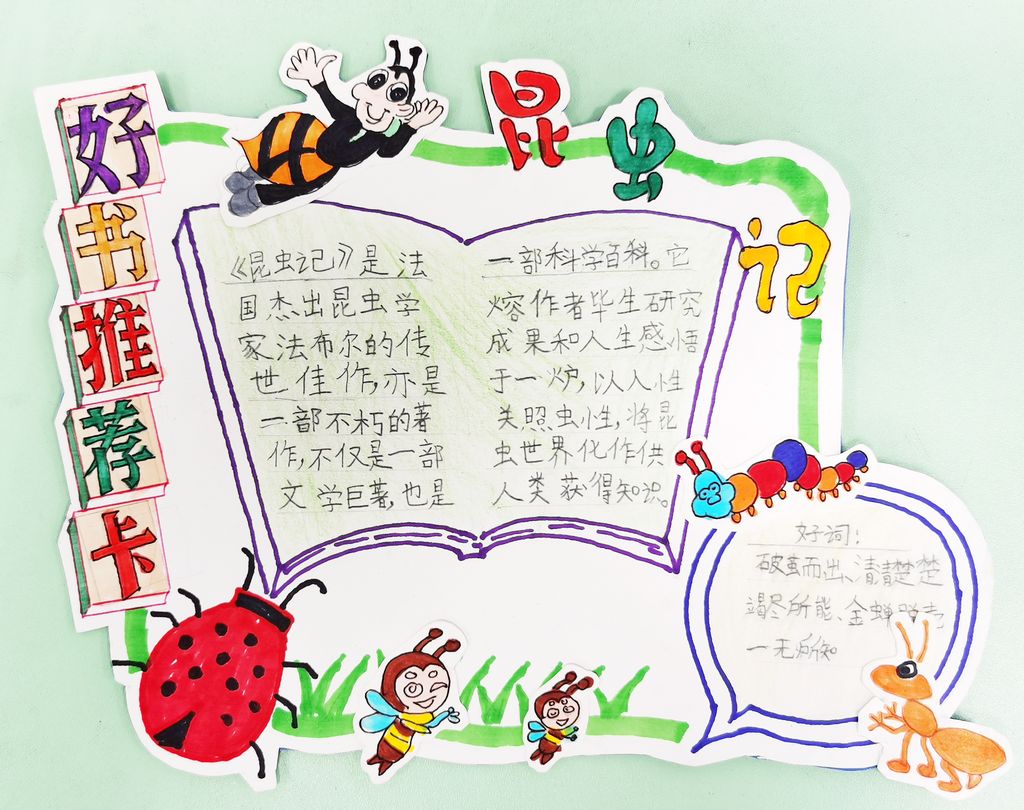 好书推荐卡
昆虫记
《昆虫记》是法
国杰出昆虫学
家法布尔的传
世佳作,亦是
一部不朽的著
作,不仅是一部
文学巨著,也是
一部科学百科。它
熔作者毕生研究
成果和人生感悟
于一炉,以人性
关照虫性,将昆
虫世界化作供
人类获得知识。
好词:
破茧而出、清清楚楚
竭尽所能、金蝉脱壳
一无所知